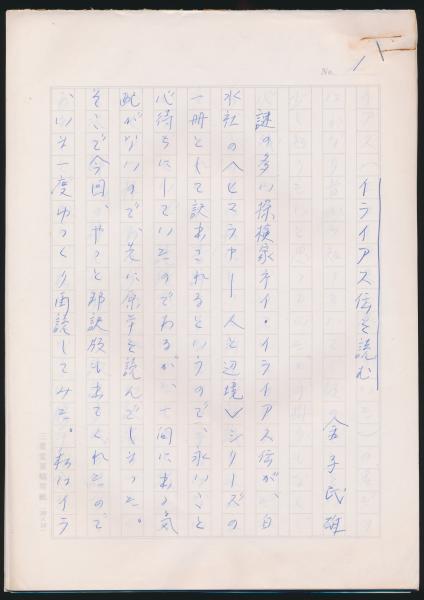 No. 1
イライアス伝を読む
金子民雄
謎の多い探検家ネイ・イライアス伝が、白
水社の〈ヒマラヤー人と辺境〉シリーズの
一冊として訳出されるというので、永いこと
心待ちにしていたのであるが、一向に出る気
配がないので、先に原本を読んでしまった。
そこで今回、やっと邦訳版も出てくれたので
もう一度ゆっくり再読してみた。私はイラ